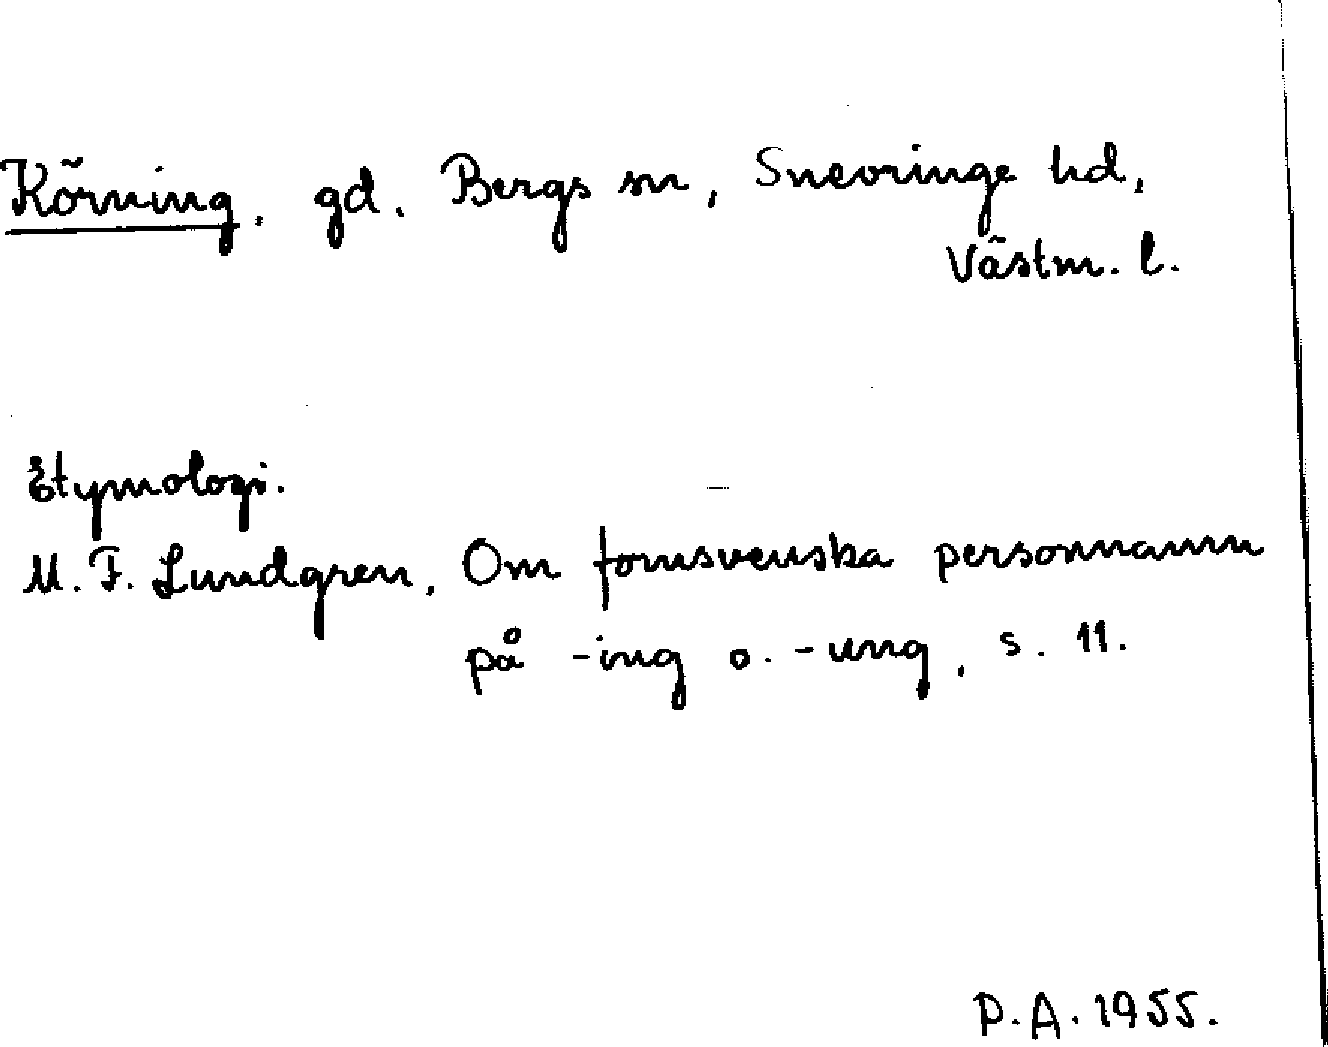 Körning, gd, Bergs sn, Snevringe hd,
Västm. l.
Etymologi.
M. F. Lundgren, Om fornsvenska personnamn
på -ing o. -ung, s. 11.
P.A. 1955.